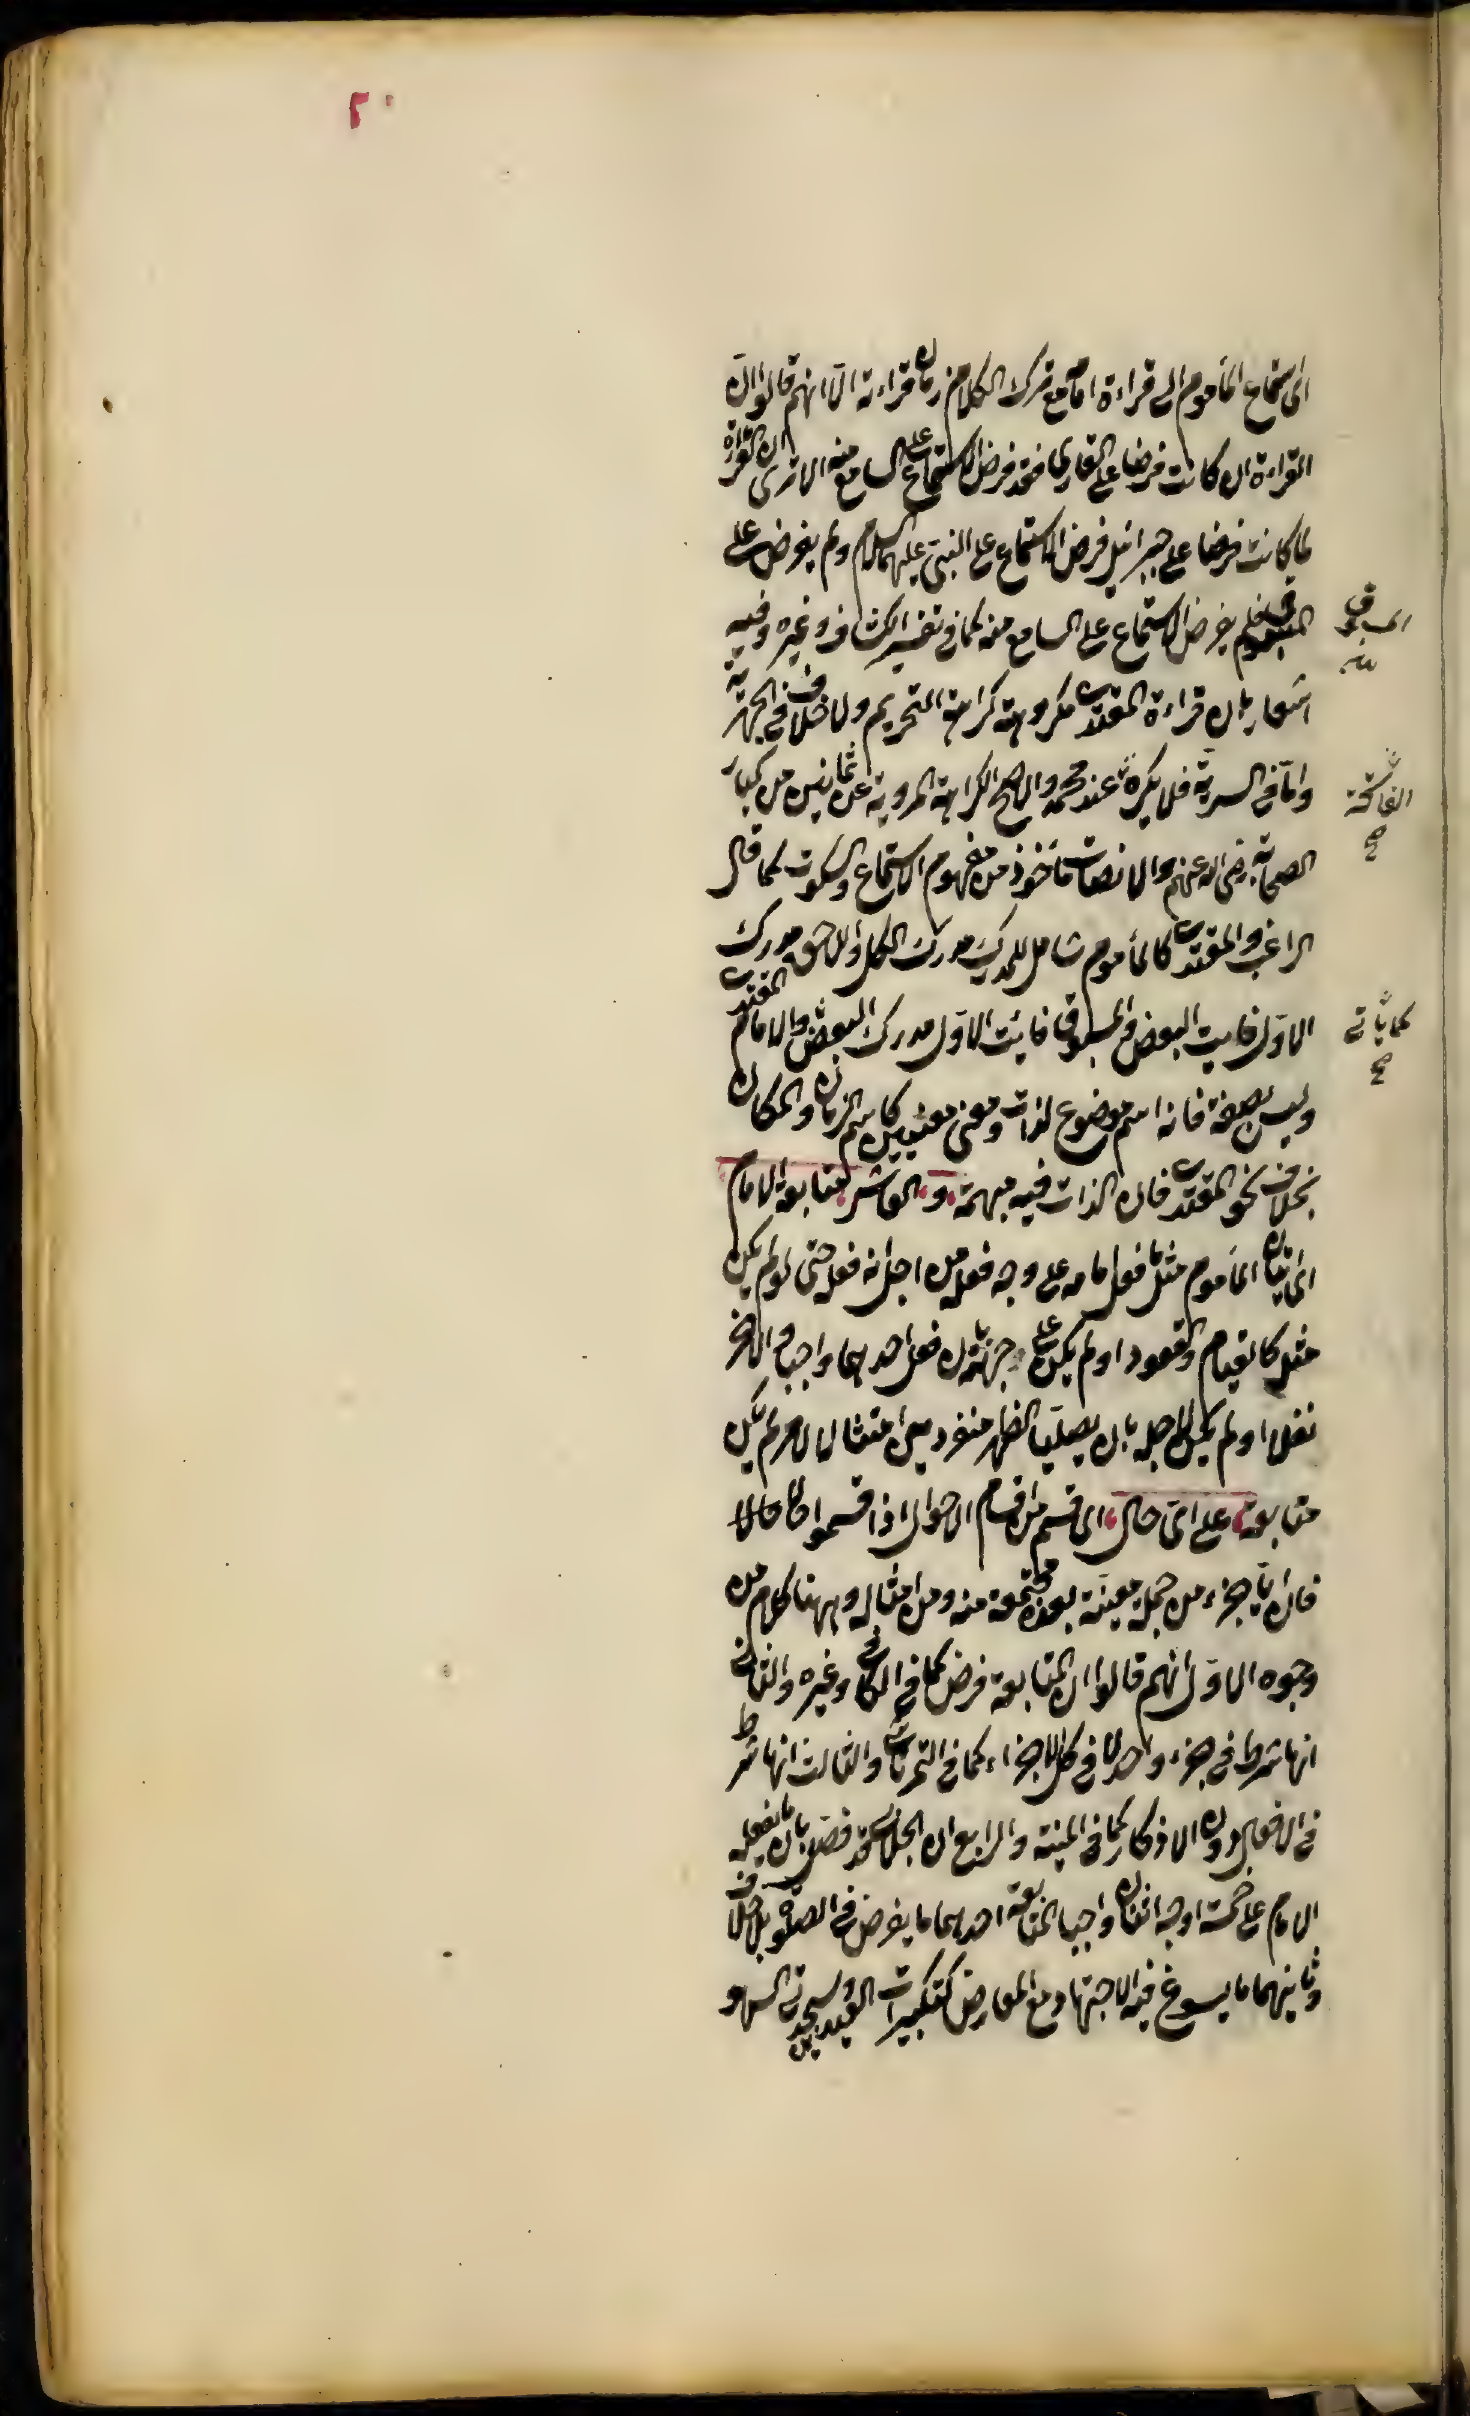 ٢٠
اى استماع المأموم الى قراءة امامه مع ترك الكلام زمان قراءته الا انهم قالوا ان
القراءة ان كانت فرضا على القارى فقد فرض الاستماع على السامع منه الا ترى ان القراءة
لما كانت فرضا على جبرائيل فرض الاستماع على النبى عليهما السلام ولم يفرض على
فلم يفرض الاستماع على السامع منه كما فى تفسير الكشاف وغيره وفيه
اشعار بان قراءة المقتدى مكروهة كراهة التحريم ولا خلاف فى الجهرية
واما فى السرية فلا يكره عند محمد والاصح الكراهة المروية عن ثمانين من كبار
الصحابة رضى الله عنهم والانصات مأخوذ من مفهوم الاستماع والسكوت كما قال
الراغب والمقتدى كالمأموم شامل للمدرك مدرك الكل واللاحق مدرك
الاول فايت البعض والمسبوق فايت الاول مدرك البعض والامام المقتدى
وليس بصفة فانه اسم موضوع لذات ومعنى معينين كاسم الزمان والمكان
بخلاف نحو المقتدى فان الذات فيه مبهمة و العاشر متابعة الامام
اى اتيان المأموم مثل ما فعل امامه على وجه فعله من اجل انه فعله حتى لو لم يكن
مثله كالقيام والقعود او لم يكن على جهته بان فعل احدهما واجبا والاخر
نفلا او لم يكن لاجله بان يصليا الظهر منفردين امتثالا للامر لم يكن
متابعة على اى حال اى قسم من اقسام الاحوال اذا قسموا حالا حالا
فان ايا جزء من جملة معينة بعده مجتمعة منه ومن امثاله وههنا كلام من
وجوه الاول انهم قالوا ان المتابعة فرض كما فى الكافى وغيره والثانى
انها شرط فى جزء واحد لا فى كل الاجزاء كما فى التمرتاشى والثالث انها شرط
فى الافعال دون الاذكار كما فى المنية والرابع ان الجلابى قد فصل بان ما يفعله
الامام على خمسة اوجه اثنان واجبا المتابعة احدهما ما يفرض فى الصلوة بلا خلاف
وثانيهما ما يسوغ فيه الاجتهاد مع المعارض كتكبيرات العيدين وسجدتى السهو
المسبوق
الفاتحة
صح
كما يأتى
صح